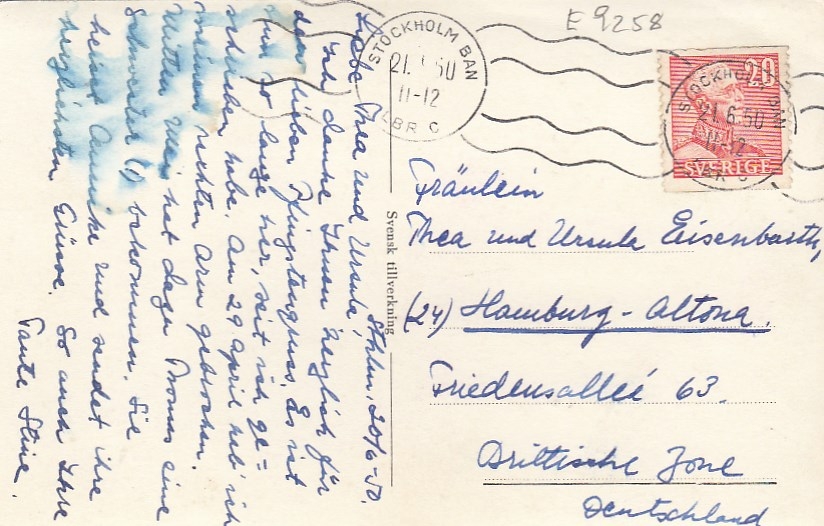 E 9258
STOCKHOLM BAN
21. 50
11-12
LBR C
20
STOCKHOLM BAN
21.6.50
11-12
SVERIGE
Sthlm, 20/6-50.
Liebe Thea und Ursula,
Ich danke Ihnen herzlich für
den lieben Pfingstengruss. Es ist
nun so lange her, seit ich ge-
schrieben habe. Am 29 April hab' ich
meinen rechten Arm gebrochen.
Mitten Mai hat dagen Tomas eine
Schwester (!) bekommen. Sie
heisst Annike und sendet ihre
herzlichsten Grüsse. So auch Ihre
Tante Stine.
Svensk tillverkning
Fräulein
Thea und Ursula Eisenbarth,
(24) Hamburg - Altona.
Friedensallee 63.
Brittische Zone
Deutschland